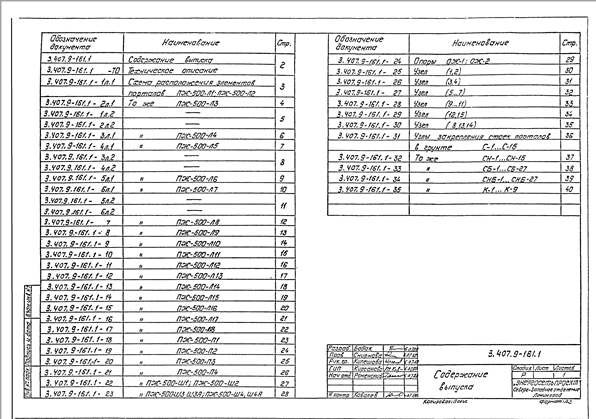 Обозначение документа Наименование Стр.
3.407.9-161.1 Содержание выпуска 2
3.407.9-161.1 -ТО Техническое описание
3.407.9-161.1- 1л.1 Схема расположения элементов порталов ПЖ-500-Л1; ПЖ-500-Л2 3
3.407.9-161.1- 2л.1 То же ПЖ-500-Л3 4
3.407.9-161.1- 1л.2 —
3.407.9-161.1- 2л.2 — 5
3.407.9-161.1- 3л.1 " ПЖ-500-Л4 6
3.407.9-161.1- 4л.1 " ПЖ-500-Л5 7
3.407.9-161.1- 3л.2 —
3.407.9-161.1- 4л.2 — 8
3.407.9-161.1- 5л.1 " ПЖ-500-Л6 9
3.407.9-161.1- 6л.1 " ПЖ-500-Л7 10
3.407.9-161.1- 5л.2 —
3.407.9-161.1- 6л.2 — 11
3.407.9-161.1- 7 " ПЖ-500-Л8 12
3.407.9-161.1- 8 " ПЖ-500-Л9 13
3.407.9-161.1- 9 " ПЖ-500-Л10 14
3.407.9-161.1- 10 " ПЖ-500-Л11 15
3.407.9-161.1- 11 " ПЖ-500-Л12 16
3.407.9-161.1- 12 " ПЖ-500-Л13 17
3.407.9-161.1- 13 " ПЖ-500-Л14 18
3.407.9-161.1- 14 " ПЖ-500-Л15 19
3.407.9-161.1- 15 " ПЖ-500-Л16 20
3.407.9-161.1- 16 " ПЖ-500-Л17 21
3.407.9-161.1- 17 " 22
3.407.9-161.1- 18 " ПЖ-500-П1 23
3.407.9-161.1- 19 " ПЖ-500-П2 24
3.407.9-161.1- 20 " ПЖ-500-П3 25
3.407.9-161.1- 21 " ПЖ-500-П4 26
3.407.9-161.1- 22 " ПЖ-500-Ш1; ПЖ-500-Ш2 27
3.407.9-161.1- 23 " ПЖ-500-Ш4, Ш4Я 28
Обозначение документа Наименование Стр.
3.407.9-161.1- 24 Опоры ОЖ-1; ОЖ-2 29
3.407.9-161.1- 25 Узел (1,2) 30
3.407.9-161.1- 26 Узел (3,4) 31
3.407.9-161.1- 27 Узел (5...7) 32
3.407.9-161.1- 28 Узел (9...11) 33
3.407.9-161.1- 29 Узел (12,15) 34
3.407.9-161.1- 30 Узел (8,13,14) 35
3.407.9-161.1- 31 Узлы закрепления стоек порталов 36
в грунте С-1...С-15
3.407.9-161.1- 32 То же СН-1...СН-15 37
3.407.9-161.1- 33 " СБ-1...СБ-27 38
3.407.9-161.1- 34 " СНБ-1...СНБ-27 39
3.407.9-161.1- 35 " К-1...К-9 40
3.407.9-161.1
Содержание выпуска
Стадия Лист Листов
Р 1
Энергосетьпроект
Северо-Западное отделение
Ленинград
Разраб. Бабак
Пров. Смирнова
ГИП
Копировал
Формат А3